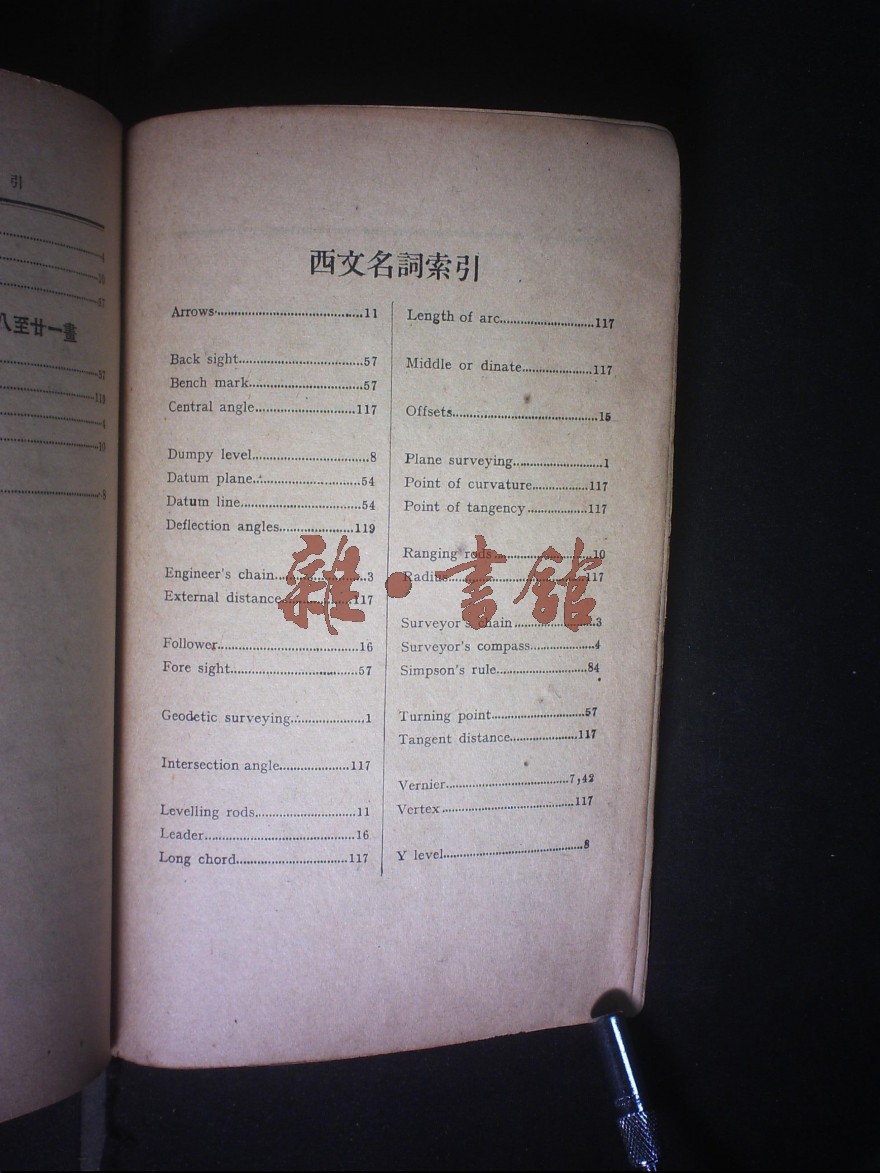 引
4
10
57
八至廿一畫
57
119
4
10
8
西文名詞索引
Arrows 11
Back sight 57
Bench mark 57
Central angle 117
Dumpy level 8
Datum plane 54
Datum line 54
Deflection angles 119
Engineer's chain 3
External distance 117
Follower 16
Fore sight 57
Geodetic surveying 1
Intersection angle 117
Levelling rods 11
Leader 16
Long chord 117
Length of arc 117
Middle or dinate 117
Offsets 15
Plane surveying 1
Point of curvature 117
Point of tangency 117
Ranging rods 10
Radius 117
Surveyor's chain 3
Surveyor's compass 4
Simpson's rule 84
Turning point 57
Tangent distance 117
Vernier 7,42
Vertex 117
Y level 8
雜·書館